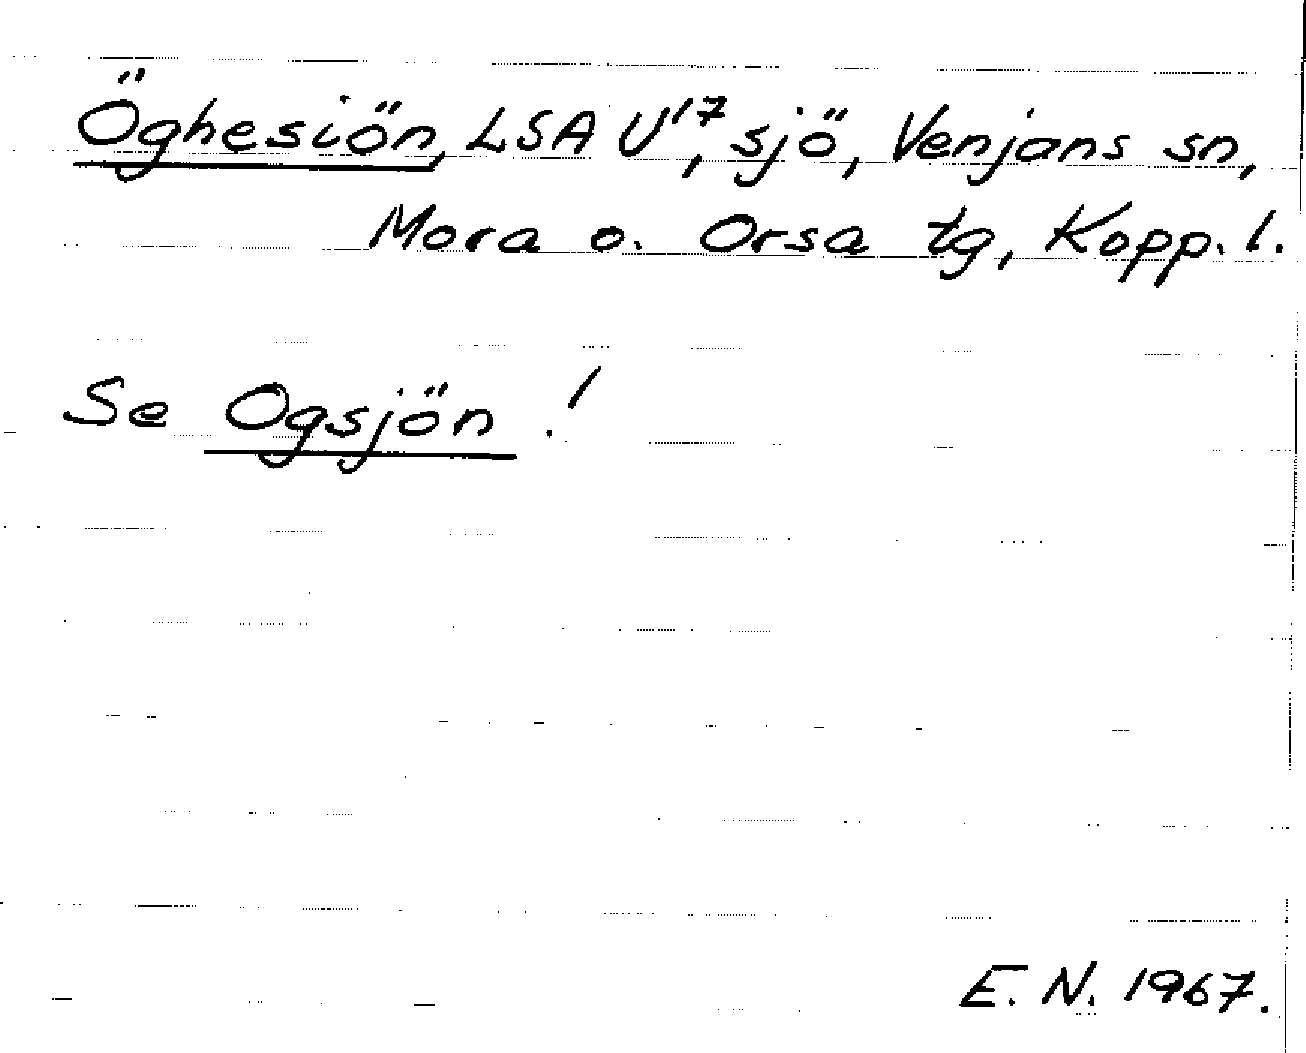 Öghesiön, LSA U¹⁷, sjö, Venjans sn,
Mora o. Orsa tg, Kopp. l.
Se Ogsjön !
E. N. 1967.